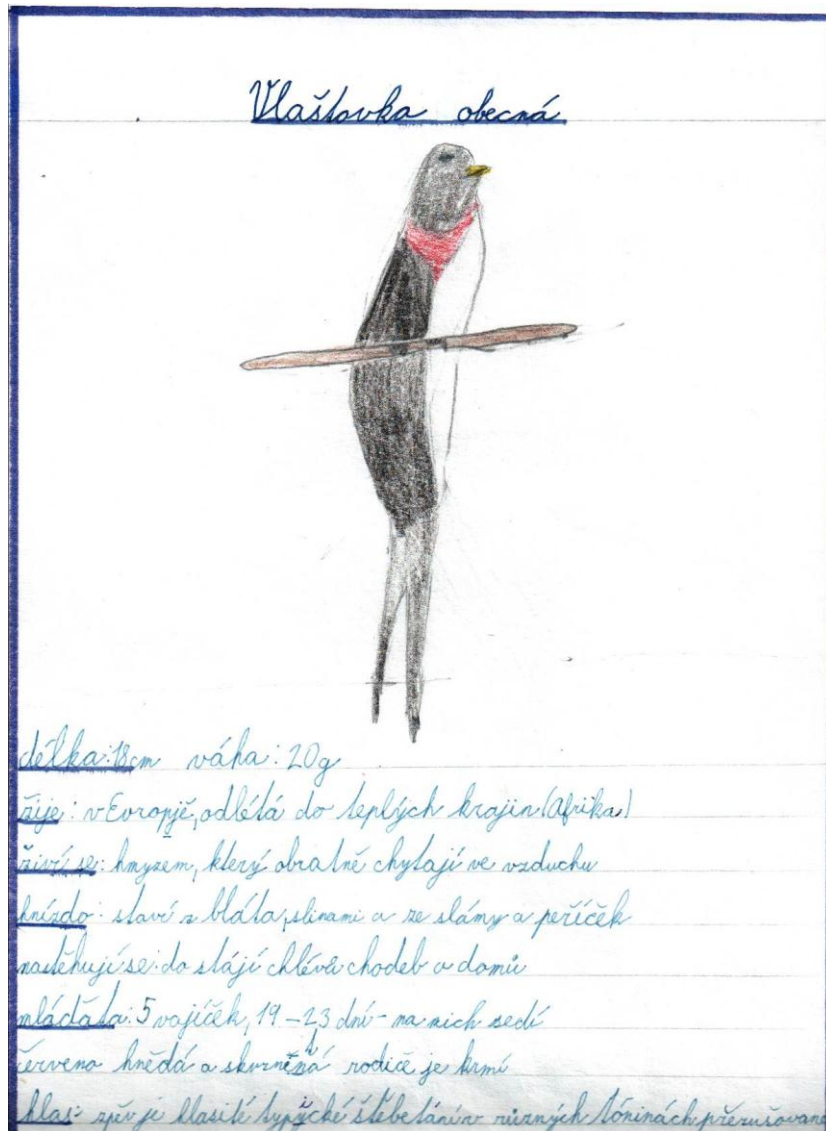 Vlaštovka obecná
délka: 18cm váha: 20g
žije: v Evropjě, odlétá do teplých krajin (Afrika)
živí se: hmyzem, který obratně chytají ve vzduchu
hnízdo: staví z bláta, slinami a ze slámy a peříček
nastěhují se: do stájí chlévů chodeb a domů
mláďata: 5 vajíček, 19-23 dní - na nich sedí
červeno hnědá a skvrněná rodiče je krmí
hlas: zpěv je hlasité typycké štěbetání v různých tóninách přerušované